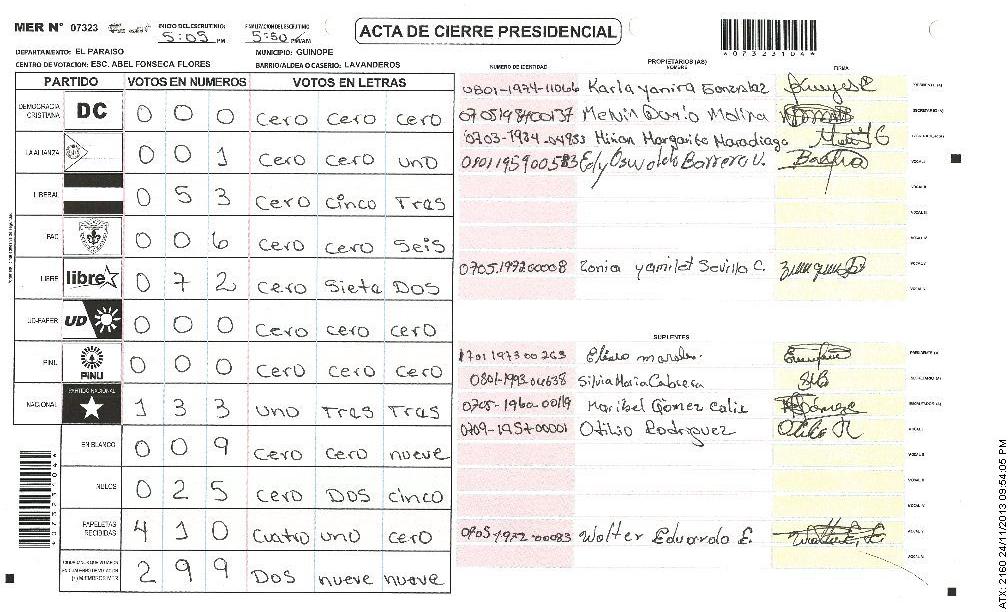 MER N° 07323 INICIO DEL ESCRUTINIO: 5:05 PM FINALIZACION DEL ESCRUTINIO 5:50 PM/AM
ACTA DE CIERRE PRESIDENCIAL
4073231044
DEPARTAMENTO: EL PARAISO MUNICIPIO: GUINOPE
CENTRO DE VOTACION: ESC. ABEL FONSECA FLORES BARRIO/ALDEA O CASERIO: LAVANDEROS
PARTIDO VOTOS EN NUMEROS VOTOS EN LETRAS
DEMOCRACIA CRISTIANA DC 0 0 0 cero cero cero
LA ALIANZA 0 0 1 cero cero uno
LIBERAL 0 5 3 cero cinco Tras
FAC 0 0 6 cero cero seis
LIBRE libre 0 7 2 cero Siete DOS
UD-FAPER UD 0 0 0 cero cero cero
PINU PINU 0 0 0 cero cero cero
NACIONAL PARTIDO NACIONAL 1 3 3 uno Tras Tras
EN BLANCO 0 0 9 cero cero nueve
NULOS 0 2 5 cero DOS cinco
PAPELETAS RECIBIDAS 4 1 0 cuatro uno cero
2 9 9 DOS nueve nueve
PROPIETARIOS (AS)
NUMERO DE IDENTIDAD NOMBRE FIRMA
0801-1974-11066 Karla yanira Gonzalez PRESIDENTE (A)
0705198400137 Melvin Dario Molina SECRETARIO (A)
0703-1984-04983 Mirian Margarita Maradiaga
0801195900583 Edy Oswaldo Barrera V. VOCAL I
VOCAL II
VOCAL III
VOCAL IV
0705.197200008 Sonia yamilet Sevilla C. VOCAL V
SUPLENTES
1701197300263 Eliseo morales. PRESIDENTE (A)
0801-1993-04638 Silvia Maria Cabrera SECRETARIO (A)
0705-1960-00119 Maribel Gomez Calix ESCRUTADOR (A)
0709-1957-00001 Otilio Rodriguez VOCAL I
VOCAL II
VOCAL III
VOCAL IV
0705-1972-00083 Walter Eduardo E.
4073231044
ATX: 2160 24/11/2013 09:54:05 PM